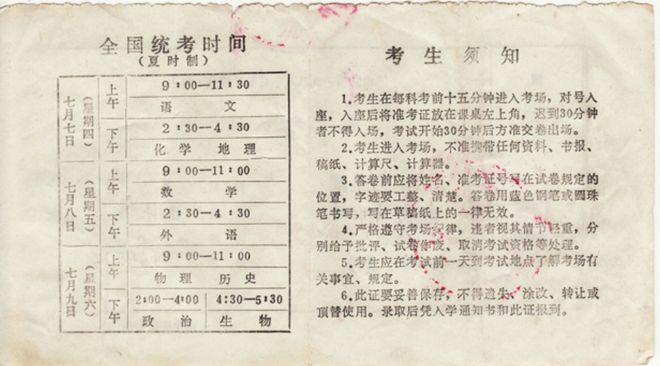 全国统考时间
(夏时制)
七月七日
(星期四)
上午
9:00—11:30
语文
下午
2:30—4:30
化学 地理
七月八日
(星期五)
上午
9:00—11:00
数学
下午
2:30—4:30
外语
七月九日
(星期六)
上午
9:00—11:00
物理 历史
下午
2:00—4:00 4:30—5:30
政治 生物
考生须知
1.考生在每科考前十五分钟进入考场,对号入
座,入座后将准考证放在课桌左上角,迟到30分钟
者不得入场,考试开始30分钟后方准交卷出场。
2.考生进入考场,不准携带任何资料、书报、
稿纸、计算尺、计算器。
3.答卷前应将姓名、准考证号写在试卷规定的
位置,字迹要工整、清楚。答卷用蓝色钢笔或圆珠
笔书写,写在草稿纸上的一律无效。
4.严格遵守考场纪律,违者视其情节轻重,分
别给予批评、试卷作废、取消考试资格等处理。
5.考生应在考试前一天到考试地点了解考场有
关事宜、规定。
6.此证要妥善保存,不得遗失、涂改、转让或
顶替使用。录取后凭入学通知书和此证报到。